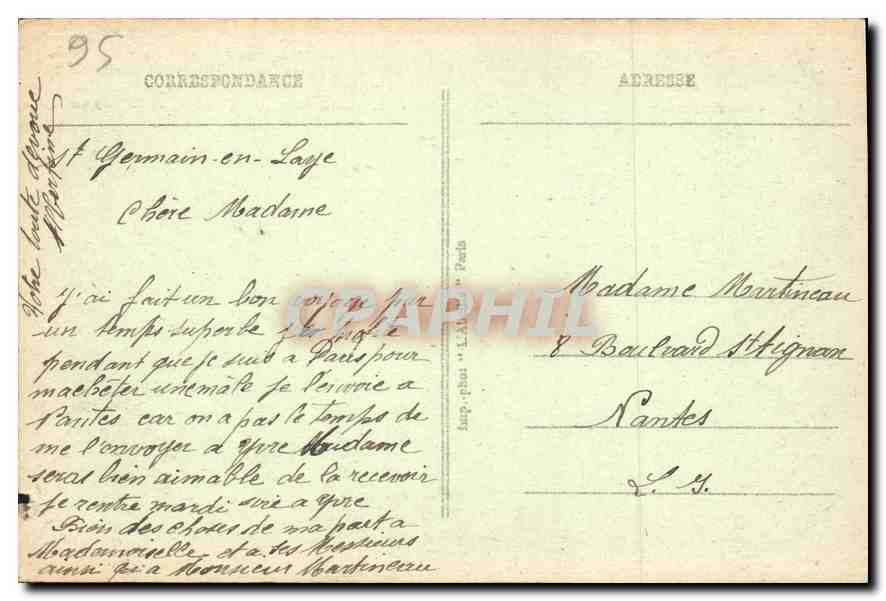 95
CORRESPONDANCE
ADRESSE
St Germain-en-Laye
Chère Madame
J'ai fait un bon voyage par
un temps superbe
pendant que je suis a Paris pour
macheter une male je l'envoie a
Nantes car on a pas le temps de
me l'envoyer a Yvre Madame
seras bien aimable de la recevoir
Je rentre mardi a Yvre
Bien des choses de ma part a
Madamoiselle et a ses Messieurs
ainsi qu'a Monsieur Martineau
Votre toute dévoué
Imp.-phot " " Paris
CPAPHIL
Madame Martineau
8 Boulvard St Aignan
Nantes
L. I.